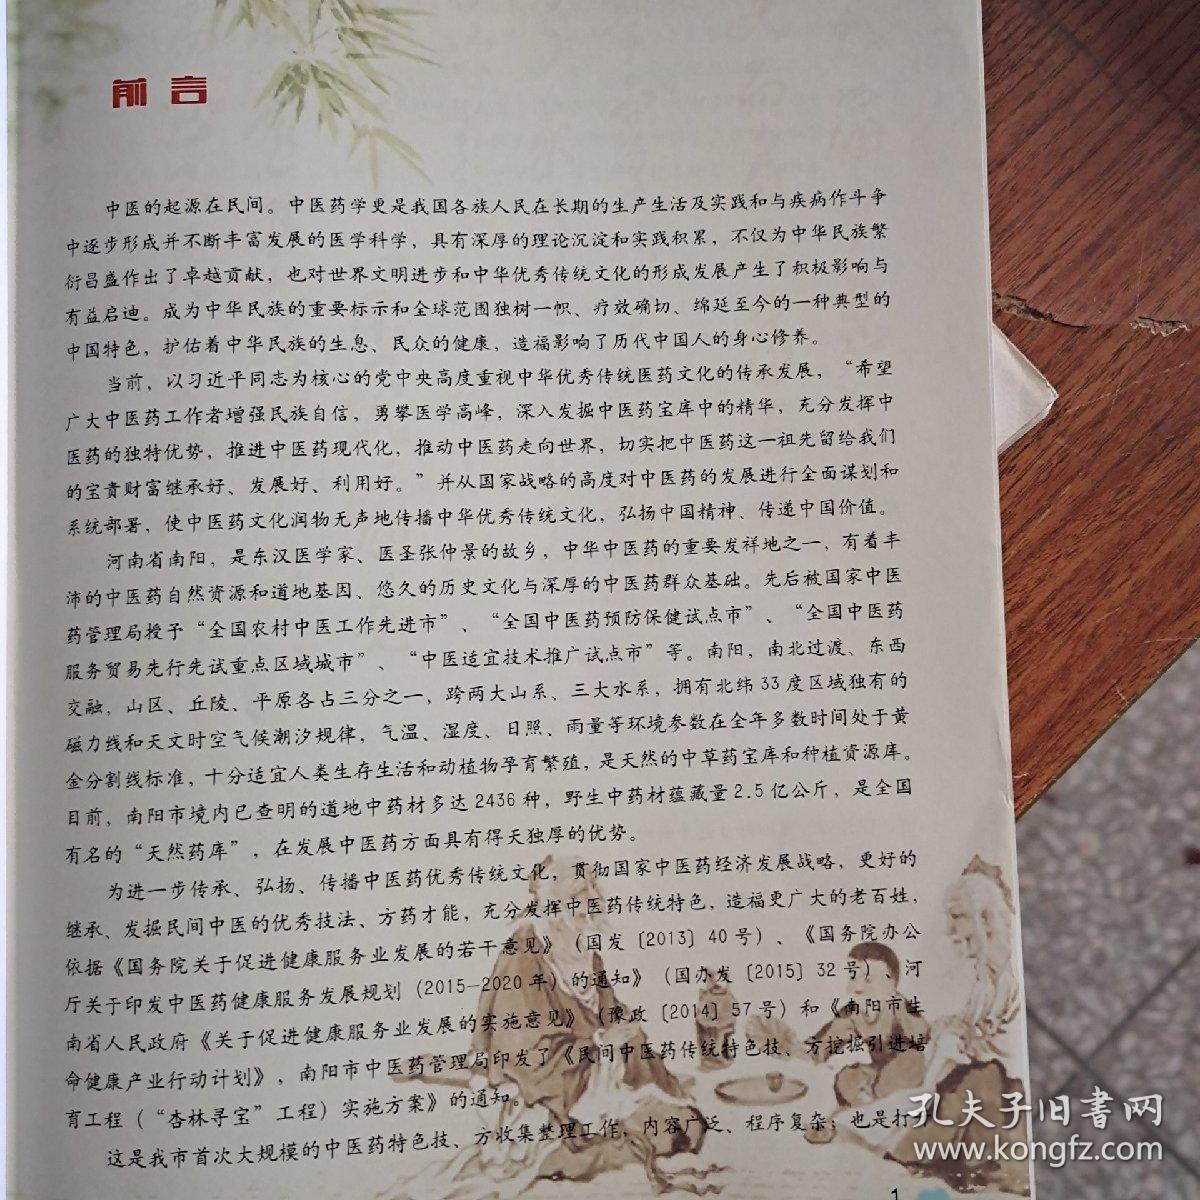 前言
中医的起源在民间。中医药学更是我国各族人民在长期的生产生活及实践和与疾病作斗争
中逐步形成并不断丰富发展的医学科学，具有深厚的理论沉淀和实践积累，不仅为中华民族繁
衍昌盛作出了卓越贡献，也对世界文明进步和中华优秀传统文化的形成发展产生了积极影响与
有益启迪。成为中华民族的重要标示和全球范围独树一帜、疗效确切、绵延至今的一种典型的
中国特色，护佑着中华民族的生息、民众的健康，造福影响了历代中国人的身心修养。
当前，以习近平同志为核心的党中央高度重视中华优秀传统医药文化的传承发展，“希望
广大中医药工作者增强民族自信，勇攀医学高峰，深入发掘中医药宝库中的精华，充分发挥中
医药的独特优势，推进中医药现代化，推动中医药走向世界，切实把中医药这一祖先留给我们
的宝贵财富继承好、发展好、利用好。”并从国家战略的高度对中医药的发展进行全面谋划和
系统部署，使中医药文化润物无声地传播中华优秀传统文化，弘扬中国精神、传递中国价值。
河南省南阳，是东汉医学家、医圣张仲景的故乡，中华中医药的重要发祥地之一，有着丰
沛的中医药自然资源和道地基因、悠久的历史文化与深厚的中医药群众基础。先后被国家中医
药管理局授予“全国农村中医工作先进市”、“全国中医药预防保健试点市”、“全国中医药
服务贸易先行先试重点区域城市”、“中医适宜技术推广试点市”等。南阳，南北过渡、东西
交融，山区、丘陵、平原各占三分之一，跨两大山系、三大水系，拥有北纬33度区域独有的
磁力线和天文时空气候潮汐规律，气温、湿度、日照、雨量等环境参数在全年多数时间处于黄
金分割线标准，十分适宜人类生存生活和动植物孕育繁殖，是天然的中草药宝库和种植资源库。
目前，南阳市境内已查明的道地中药材多达2436种，野生中药材蕴藏量2.5亿公斤，是全国
有名的“天然药库”，在发展中医药方面具有得天独厚的优势。
为进一步传承、弘扬、传播中医药优秀传统文化，贯彻国家中医药经济发展战略，更好的
继承、发掘民间中医的优秀技法、方药才能，充分发挥中医药传统特色，造福更广大的老百姓，
依据《国务院关于促进健康服务业发展的若干意见》（国发〔2013〕40号）、《国务院办公
厅关于印发中医药健康服务发展规划（2015—2020年）的通知》（国办发〔2015〕32号）、河
南省人民政府《关于促进健康服务业发展的实施意见》（豫政〔2014〕57号）和《南阳市生
命健康产业行动计划》，南阳市中医药管理局印发了《民间中医药传统特色技、方挖掘引进培
育工程（“杏林寻宝”工程）实施方案》的通知。
这是我市首次大规模的中医药特色技、方收集整理工作，内容广泛、程序复杂；也是打
1
孔夫子旧书网
www.kongfz.com